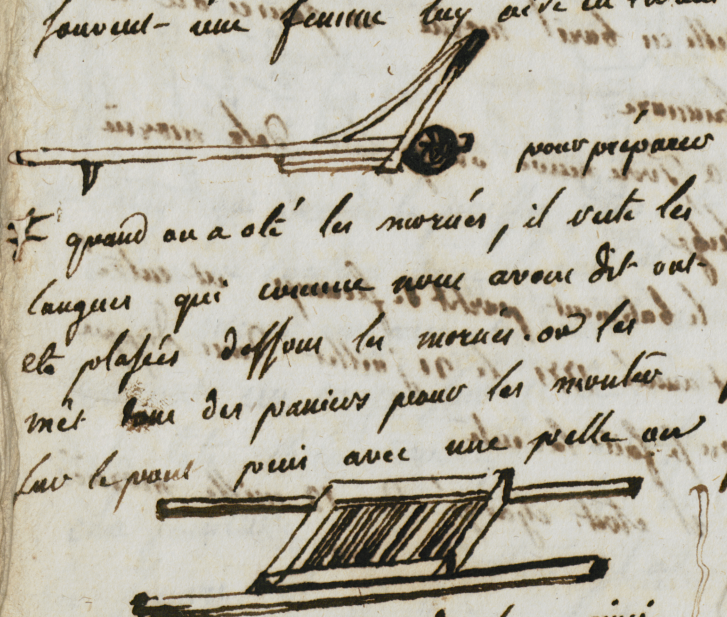 souvent une femme luy aide
pour préparer
quand on a oté les morués, il reste les
langues qui comme nous avons dit ont
eté plasées dessous les morués. on les
mèt dans des paniers pour les monter
sur le pont puis avec une pelle on